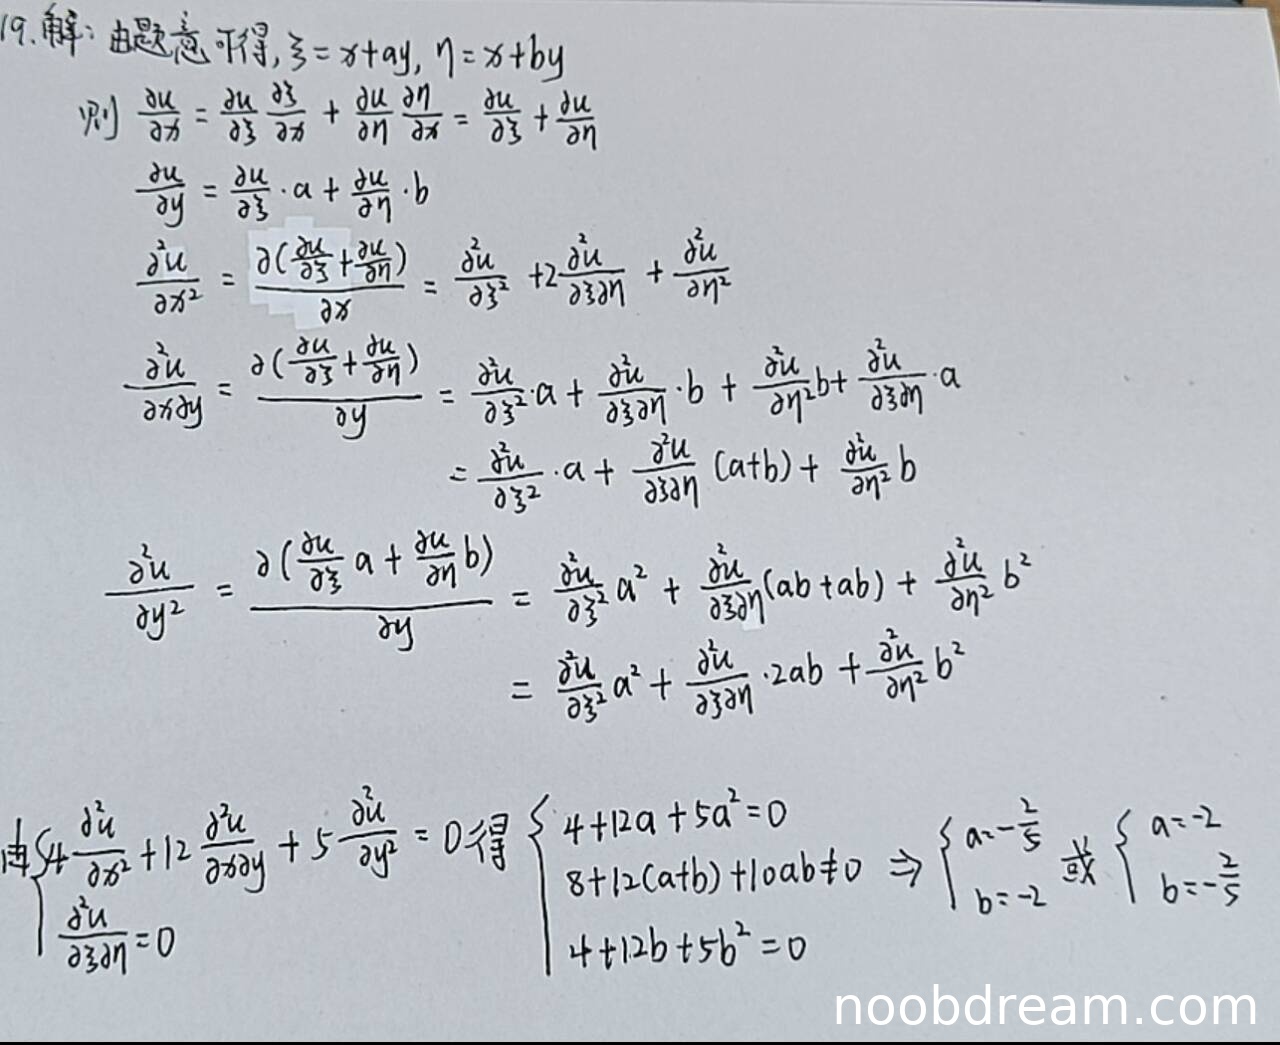 19.解: 由题意可得, ξ=x+ay, η=x+by
则 ∂u/∂x = ∂u/∂ξ ∂ξ/∂x + ∂u/∂η ∂η/∂x = ∂u/∂ξ + ∂u/∂η
∂u/∂y = ∂u/∂ξ · a + ∂u/∂η · b
∂²u/∂x² = ∂(∂u/∂ξ + ∂u/∂η)/∂x = ∂²u/∂ξ² + 2 ∂²u/∂ξ∂η + ∂²u/∂η²
∂²u/∂x∂y = ∂(∂u/∂ξ + ∂u/∂η)/∂y = ∂²u/∂ξ² · a + ∂²u/∂ξ∂η · b + ∂²u/∂η² b + ∂²u/∂ξ∂η · a
= ∂²u/∂ξ² · a + ∂²u/∂ξ∂η (a+b) + ∂²u/∂η² b
∂²u/∂y² = ∂(∂u/∂ξ a + ∂u/∂η b)/∂y = ∂²u/∂ξ² a² + ∂²u/∂ξ∂η (ab+ab) + ∂²u/∂η² b²
= ∂²u/∂ξ² a² + ∂²u/∂ξ∂η · 2ab + ∂²u/∂η² b²
由 { 4 ∂²u/∂x² + 12 ∂²u/∂x∂y + 5 ∂²u/∂y² = 0
∂²u/∂ξ∂η = 0
得 { 4+12a+5a²=0
8+12(a+b)+10ab≠0
4+12b+5b²=0
⇒ { a=-2/5
b=-2
或 { a=-2
b=-2/5
noobdream.com